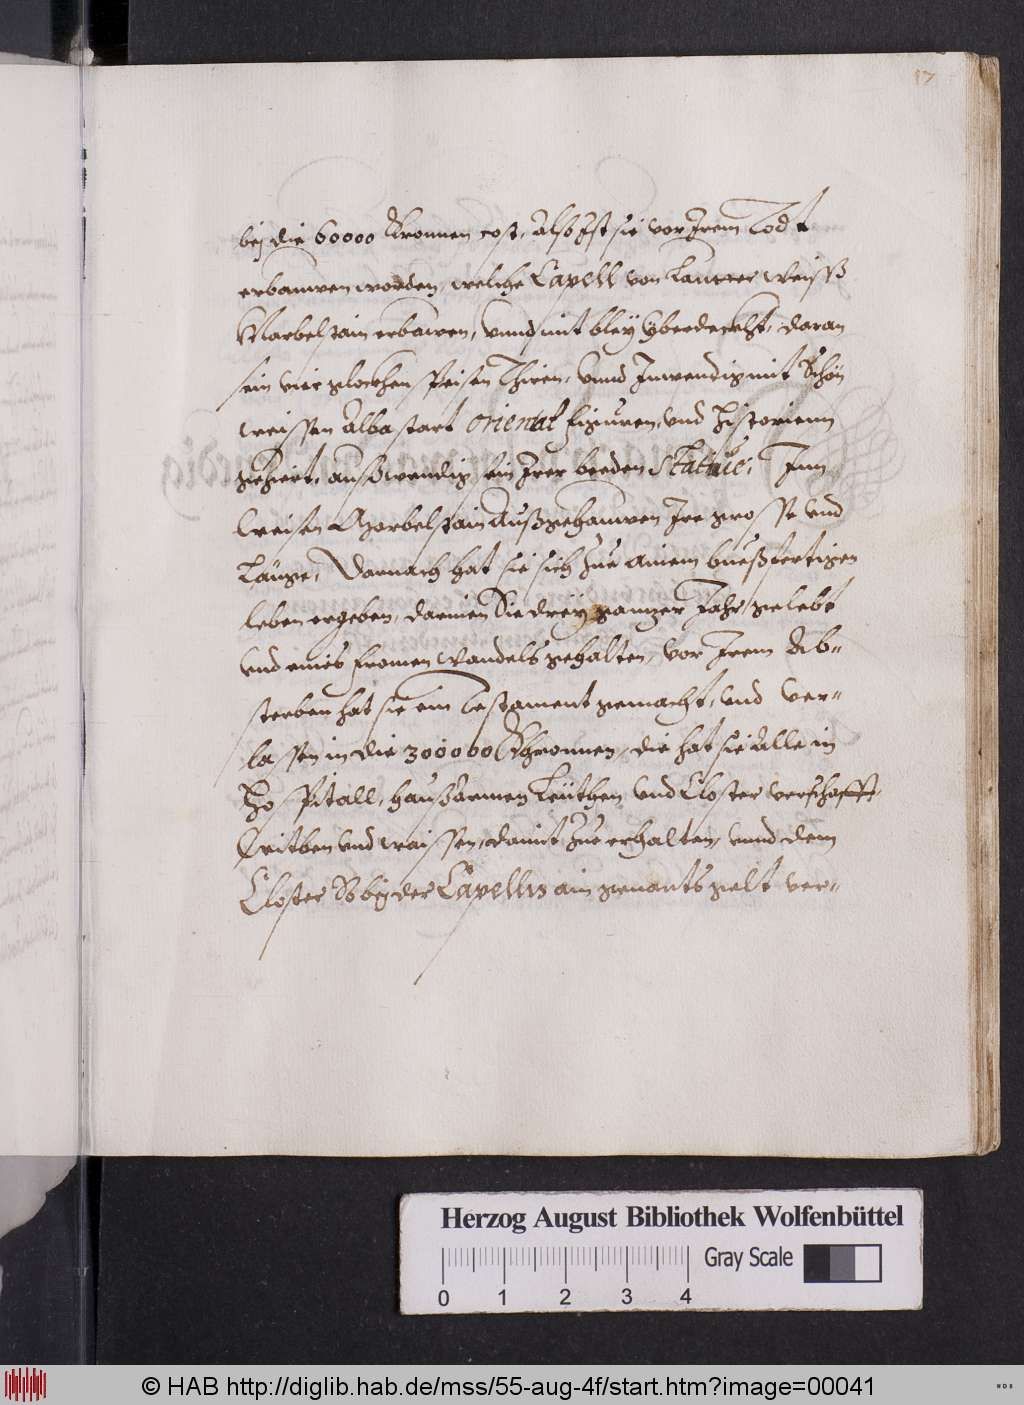 17
bej die 60000 Cronnen cost, Also ist sie vor Irem Todt
erbauwen worden, welche Capell von Lautter weiss
Marbelstain erbawen, vnnd mit bley yberdeckht, daran
sein vier glockhen speisen Thiren, vnnd Inwendig mit Schön
weissen Albastart orient figuren, vnd Historienn
geziert, außwendig sein Irer beeden Statue, Inn
weisen Marbelstain Außgehauwen Ire grosse vnd
Lange, Darnach hat sie sich Zue ainem bueßfertigen
leben ergeben, darinen Sie drey gantzer Jahr gelebt
vnd eines fromen wandels gehalten, vor Irem Ab-
sterben hat sie ein Testament gemacht, vnd ver-
lassen in die 300000 Chronnen, die hat sie Alle in
Hospitall, haußarmen Leüthen vnd Closter verschafft,
Witben vnd waissen, damit Zue erhalten, vnnd dem
Closter So bej der Capellen ain genants gelt ver-
Herzog August Bibliothek Wolfenbüttel
Gray Scale
0 1 2 3 4
© HAB http://diglib.hab.de/mss/55-aug-4f/start.htm?image=00041